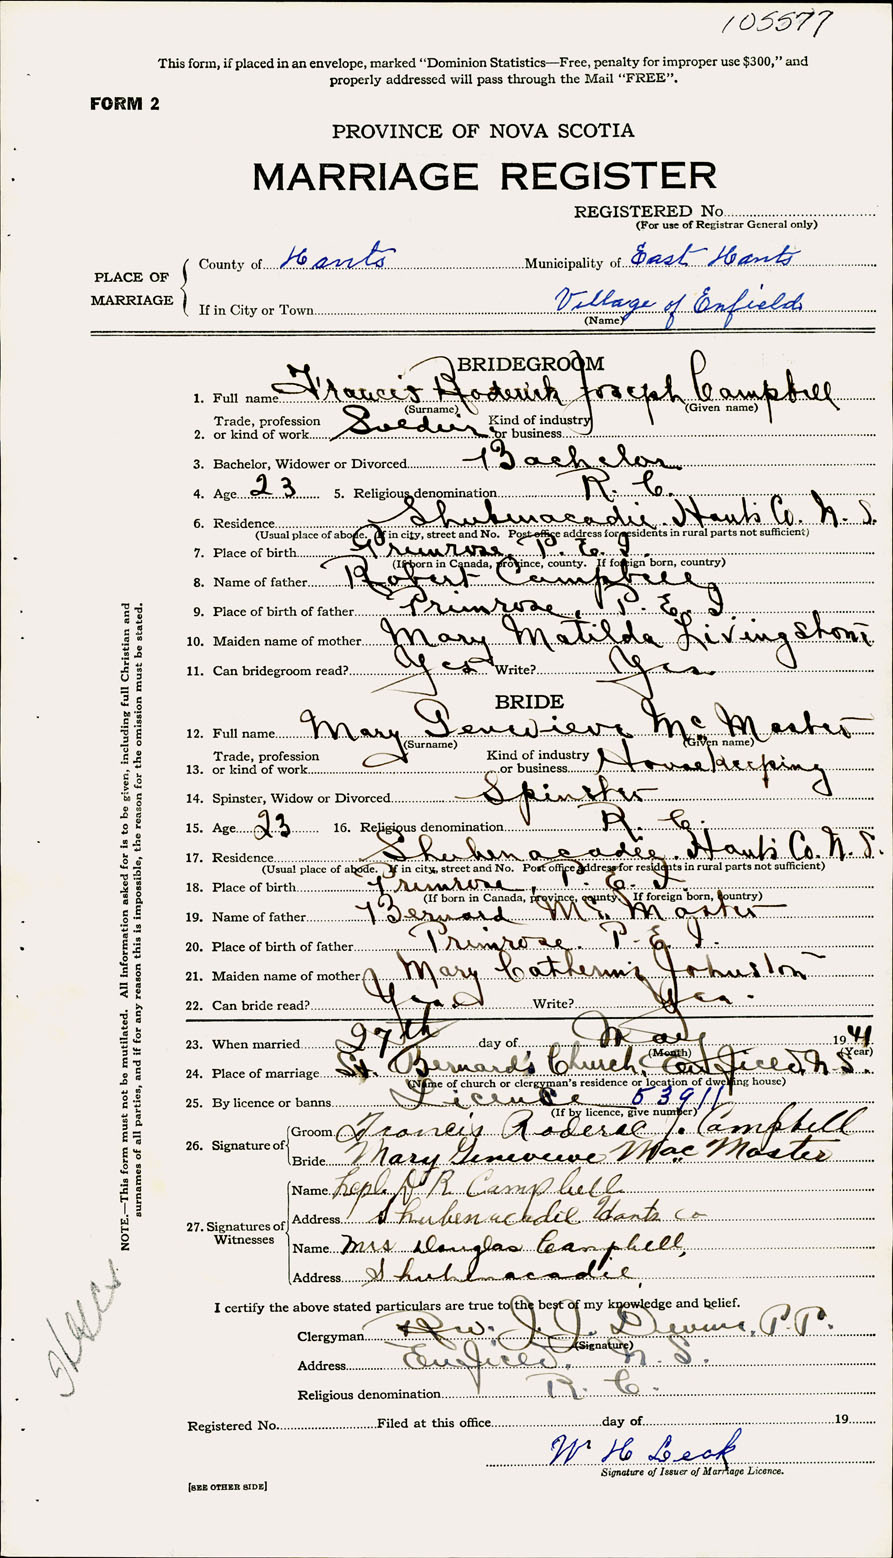 105577
This form, if placed in an envelope, marked “Dominion Statistics—Free, penalty for improper use $300,” and
properly addressed will pass through the Mail “FREE”.
FORM 2
PROVINCE OF NOVA SCOTIA
MARRIAGE REGISTER
REGISTERED No.
(For use of Registrar General only)
PLACE OF MARRIAGE
County of Hants Municipality of East Hants
If in City or Town Village of Enfield
(Name)
BRIDEGROOM
1. Full name Francis Roderick Joseph Campbell
(Surname) (Given name)
2. Trade, profession or kind of work Soldier Kind of industry or business
3. Bachelor, Widower or Divorced Bachelor
4. Age 23 5. Religious denomination R. C.
6. Residence Shubenacadie. Hants Co. N. S.
(Usual place of abode. If in city, street and No. Post office address for residents in rural parts not sufficient)
7. Place of birth Primrose, P. E. I.
(If born in Canada, province, county. If foreign born, country)
8. Name of father Robert Campbell
9. Place of birth of father Primrose, P. E. I
10. Maiden name of mother Mary Matilda Livingstone
11. Can bridegroom read? Yes Write? Yes
BRIDE
12. Full name Mary Genevieve McMaster
(Surname) (Given name)
13. Trade, profession or kind of work Kind of industry or business Housekeeping
14. Spinster, Widow or Divorced Spinster
15. Age 23 16. Religious denomination R. C.
17. Residence Shubenacadie. Hants Co. N. S.
(Usual place of abode. If in city, street and No. Post office address for residents in rural parts not sufficient)
18. Place of birth Primrose, P. E. I
(If born in Canada, province, county. If foreign born, country)
19. Name of father Bernard McMaster
20. Place of birth of father Primrose. P. E. I.
21. Maiden name of mother Mary Catherine Johnston
22. Can bride read? Yes Write? Yes.
23. When married 27th day of May 1941
(Month) (Year)
24. Place of marriage St. Bernard's Church, Enfield, N. S.
(Name of church or clergyman's residence or location of dwelling house)
25. By licence or banns Licence 53911
(If by licence, give number)
26. Signature of
Groom Francis Roderic J. Campbell
Bride Mary Genevieve MacMaster
27. Signatures of Witnesses
Name D R Campbell
Address Shubenacadie Hants Co
Name Mrs Douglas Campbell,
Address Shubenacadie,
I certify the above stated particulars are true to the best of my knowledge and belief.
Clergyman Rev. J. J. P.P.
(Signature)
Address Enfield, N. S.
Religious denomination R. C.
Registered No. Filed at this office day of 19
W H Leck
Signature of Issuer of Marriage Licence.
[SEE OTHER SIDE]
NOTE.—This form must not be mutilated. All information asked for is to be given, including full Christian and
surnames of all parties, and if for any reason this is impossible, the reason for the omission must be stated.